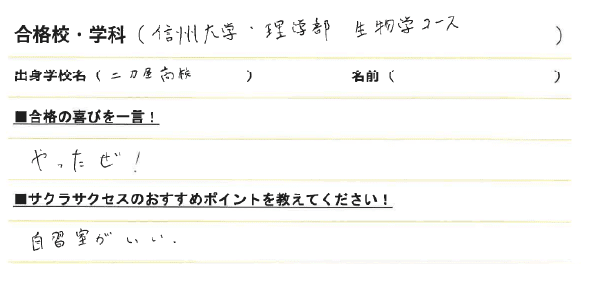 合格校・学科（信州大学・理学部 生物学コース）
出身学校名（二刀屋高校） 名前（ ）
■合格の喜びを一言！
やったぜ！
■サクラサクセスのおすすめポイントを教えてください！
自習室がいい.